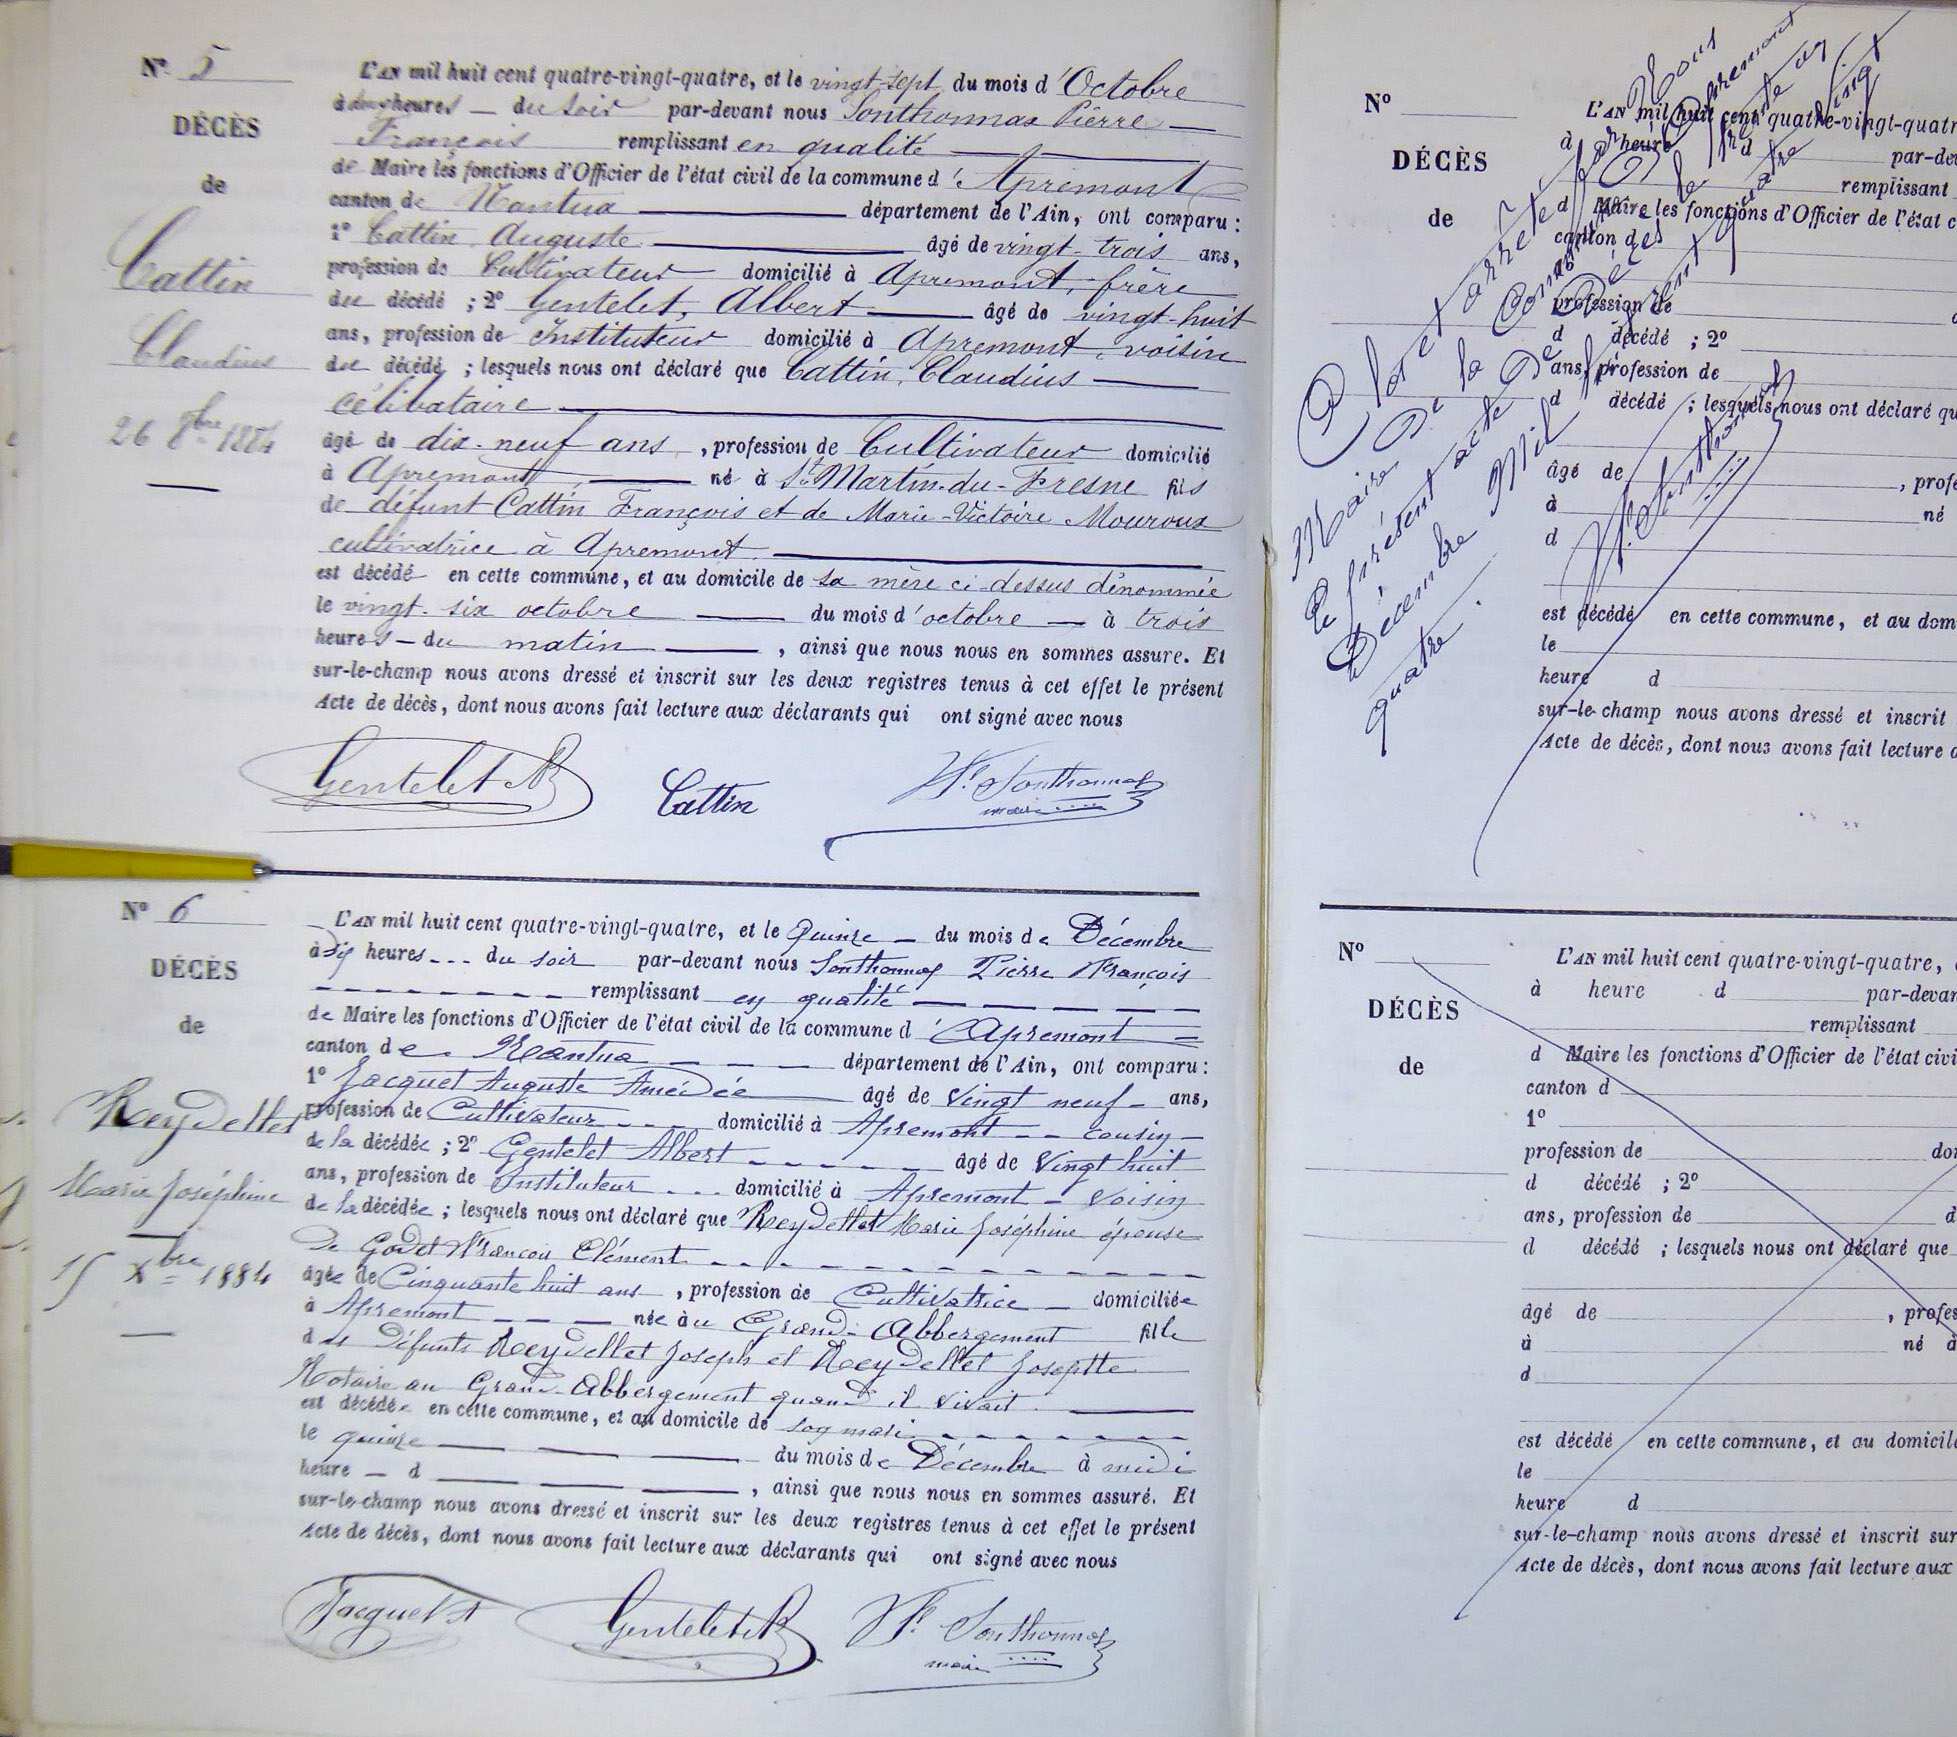 N° 5
DÉCÈS
de
Cattin
Claudius
26 8bre 1884
L'AN mil huit cent quatre-vingt-quatre, et le vingt-sept du mois d'Octobre
à heures — du soir par-devant nous Sonthonnax Pierre —
François remplissant en qualité —
de Maire les fonctions d'Officier de l'état civil de la commune d'Apremont
canton de Nantua — département de l'Ain, ont comparu :
1° Cattin Auguste — âgé de vingt-trois ans,
profession de Cultivateur domicilié à Apremont, frère
du décédé ; 2° Gentelet, Albert — âgé de vingt-huit
ans, profession de Instituteur domicilié à Apremont, voisin
du décédé ; lesquels nous ont déclaré que Cattin, Claudius —
célibataire —
âgé de dix-neuf ans, profession de Cultivateur domicilié
à Apremont, — né à St Martin-du-Fresne fils
de défunt Cattin François et de Marie-Victoire Mouroux
cultivatrice à Apremont —
est décédé en cette commune, et au domicile de sa mère ci-dessus dénommée
le vingt-six octobre — du mois d'octobre — à trois
heures — du matin —, ainsi que nous nous en sommes assuré. Et
sur-le-champ nous avons dressé et inscrit sur les deux registres tenus à cet effet le présent
Acte de décès, dont nous avons fait lecture aux déclarants qui ont signé avec nous
Gentelet A Cattin Sonthonnax
maire
N° 6
DÉCÈS
de
Reydellet
Marie Joséphine
15 Xbre 1884
L'AN mil huit cent quatre-vingt-quatre, et le Quinze — du mois de Décembre
à six heures --- du soir par-devant nous Sonthonnax Pierre François
remplissant en qualité —
de Maire les fonctions d'Officier de l'état civil de la commune d'Apremont
canton de Nantua — département de l'Ain, ont comparu :
1° Jacquet Auguste Amédée — âgé de Vingt neuf — ans,
profession de Cultivateur --- domicilié à Apremont -- cousin —
de la décédée ; 2° Gentelet Albert — âgé de Vingt huit
ans, profession de Instituteur --- domicilié à Apremont — Voisin
de la décédée ; lesquels nous ont déclaré que Reydellet Marie Joséphine épouse
De Godet François Clément ---
âgée de Cinquante huit ans, profession de Cultivatrice — domiciliée
à Apremont --- née au Grand-Abbergement fille
des Défunts Reydellet Joseph et Reydellet Josephte
Notaire au Grand-Abbergement quand il vivait. —
est décédée en cette commune, et au domicile de son mari ---
le quinze — du mois de Décembre à midi
heure — d —, ainsi que nous nous en sommes assuré. Et
sur-le-champ nous avons dressé et inscrit sur les deux registres tenus à cet effet le présent
Acte de décès, dont nous avons fait lecture aux déclarants qui ont signé avec nous
Jacquet A Gentelet A Sonthonnax
maire
N°
DÉCÈS
de
L'AN mil huit cent quatre-vingt-quatr
à heure par-de
remplissant
d Maire les fonctions d'Officier de l'état c
canton d
profession de
d décédé ; 2°
ans, profession de
d décédé ; lesquels nous ont déclaré qu
âgé de , profe
à né
d
est décédé en cette commune, et au dom
le
heure d
sur-le-champ nous avons dressé et inscrit
Acte de décès, dont nous avons fait lecture
Clos et arrêté par Nous
Maire De la Commune D'Apremont
le présent acte De Décès le trente un
Décembre Mil huit cent quatre vingt
quatre.
Sonthonnax
N°
DÉCÈS
de
L'AN mil huit cent quatre-vingt-quatre,
à heure d par-devan
remplissant
d Maire les fonctions d'Officier de l'état civi
canton d
1°
profession de do
d décédé ; 2°
ans, profession de d
d décédé ; lesquels nous ont déclaré que
âgé de , profes
à né à
d
est décédé en cette commune, et au domicile
le
heure d
sur-le-champ nous avons dressé et inscrit sur
Acte de décès, dont nous avons fait lecture aux